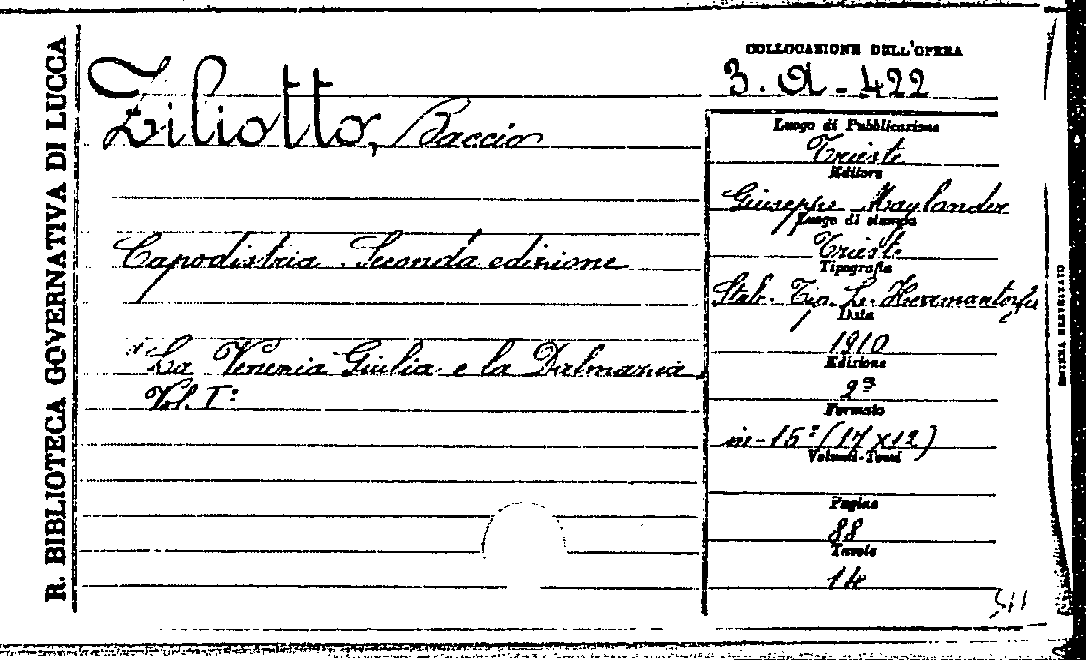 R. BIBLIOTECA GOVERNATIVA DI LUCCA
COLLOCAZIONE DELL'OPERA
3. A - 422
Ziliotto, Baccio
Capodistria. Seconda edizione
"La Venezia Giulia e la Dalmazia,
Vol. I°
Luogo di Pubblicazione
Trieste
Editore
Giuseppe Maylander
Luogo di stampa
Trieste
Tipografia
Stab. Tip. L. Herrmanstorfer
Data
1910
Edizione
2ª
Formato
in-15° (17 x 12)
Volumi-Tomi
Pagine
88
Tavole
14
511